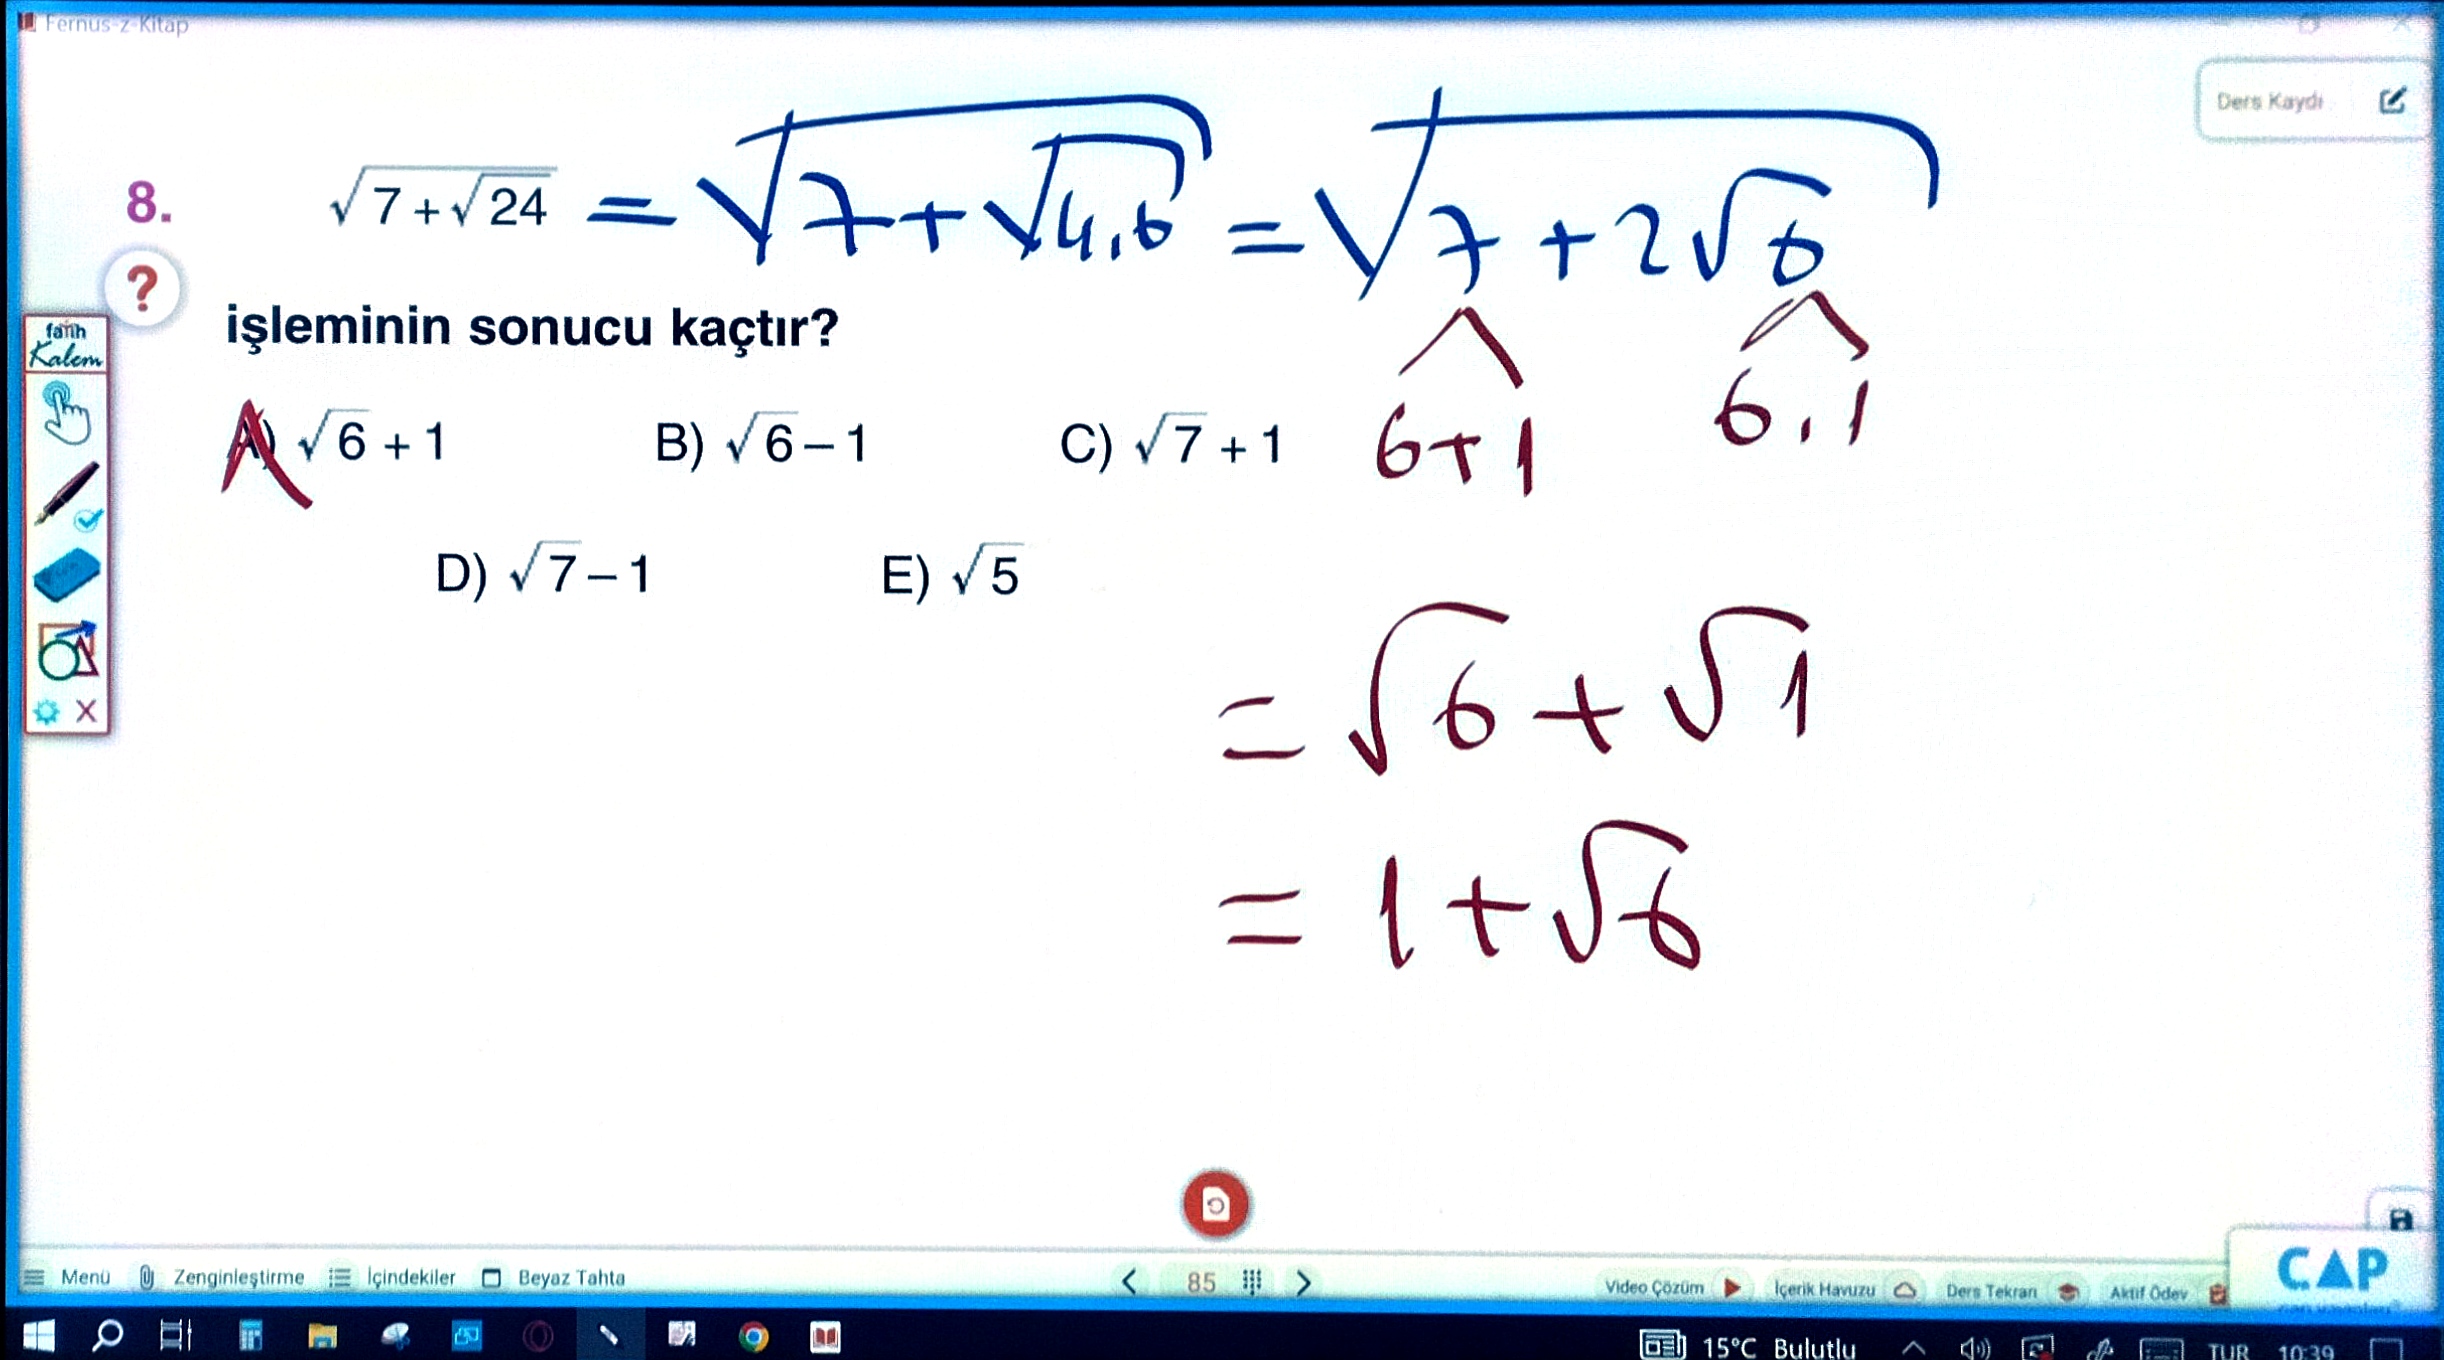 Fernus-z-Kitap
Ders Kaydı
8. √(7+√24) = √(7+√4.6) = √(7+2√6)
?
işleminin sonucu kaçtır?
6+1 6.1
fatih
Kalem
A) √6 + 1 B) √6 – 1 C) √7 + 1
D) √7 – 1 E) √5
= √6 + √1
= 1 + √6
Menü Zenginleştirme İçindekiler Beyaz Tahta 85 Video Çözüm İçerik Havuzu Ders Tekrarı Aktif Ödev
CAP
15°C Bulutlu TUR 10:39